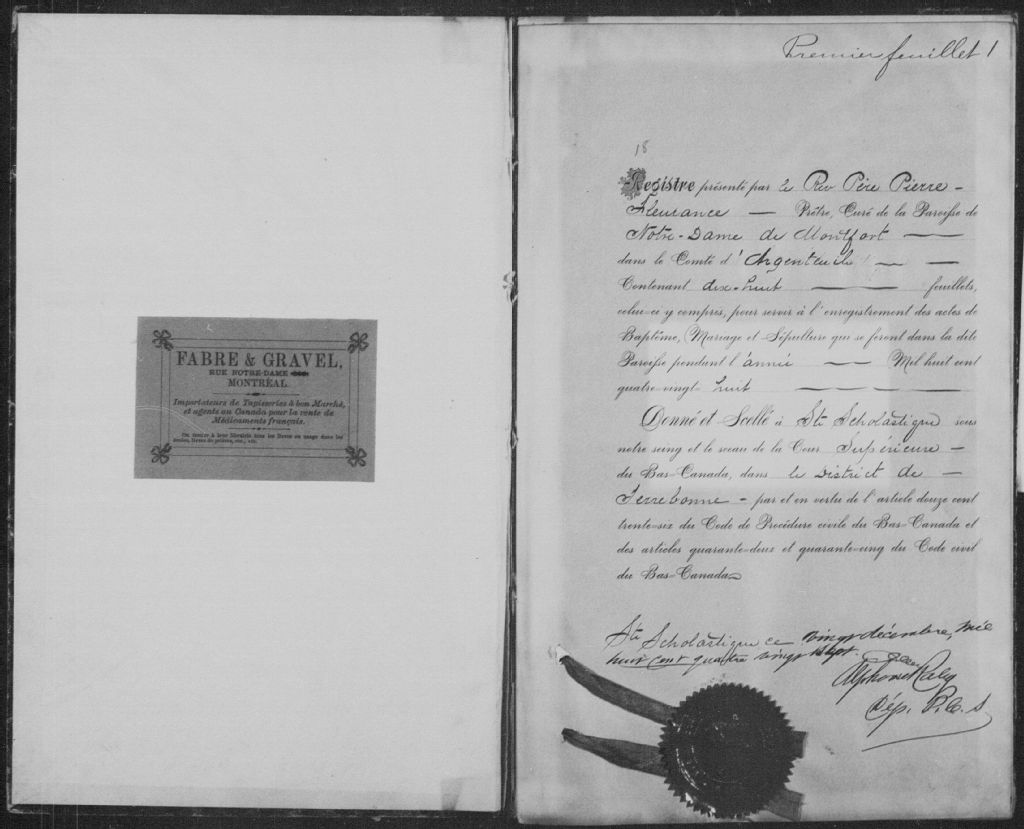 FABRE & GRAVEL,
RUE NOTRE-DAME
MONTRÉAL.
Importateurs de Tapisseries à bon Marché,
et agents au Canada pour la vente de
Médicaments français.
Premier feuillet 1
18
Registre présenté par le Rev Père Pierre –
Fleurance — Prêtre, Curé de la Paroisse de
Notre-Dame de Montfort —
dans le Comté d'Argenteuil — —
Contenant dix-huit — feuillets,
celui-ci y compris, pour servir à l'enregistrement des actes de
Baptême, Mariage et Sépulture qui se feront dans la dite
Paroisse pendant l'année — Mil huit cent
quatre-vingt huit — — — —
Donné et Scellé à Ste Scholastique sous
notre seing et le sceau de la Cour Supérieure –
du Bas-Canada, dans le District de –
Terrebonne – par et en vertu de l'article douze cent
trente-six du Code de Procédure civile du Bas-Canada et
des articles quarante-deux et quarante-cinq du Code civil
du Bas-Canada
Ste Scholastique ce vingt décembre, mil
huit cent quatre vingt sept.
Alphonse
Dép. P.C.S